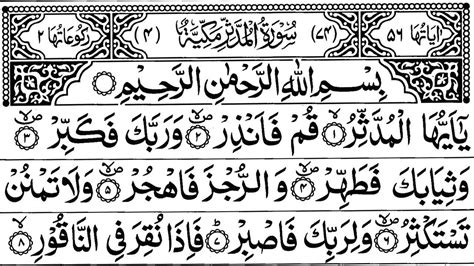 اٰیَاتُهَا ۵۶ (۷۴) سُوْرَةُ الْمُدَّثِّرِ مَكِّيَّةٌ (۴) رُكُوْعَاتُهَا ۲
بِسْمِ اللهِ الرَّحْمٰنِ الرَّحِيْمِ
يٰۤاَيُّهَا الْمُدَّثِّرُ ۱ قُمْ فَاَنْذِرْ ۲ وَرَبَّكَ فَكَبِّرْ ۳
وَثِيَابَكَ فَطَهِّرْ ۴ وَالرُّجْزَ فَاهْجُرْ ۵ وَلَا تَمْنُنْ
تَسْتَكْثِرُ ۶ وَلِرَبِّكَ فَاصْبِرْ ۷ فَاِذَا نُقِرَ فِى النَّاقُوْرِ ۸